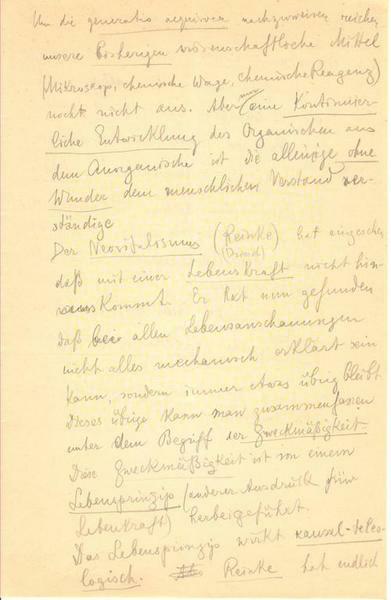 Um die generatio aequivoca nachzuweisen reichen
unsere bisherigen wissenschaftliche Mittel
(Mikroskop, chemische Wage, chemische Reagenz)
noch nicht aus. Aber eine Kontinuier-
liche Entwicklung des Organischen aus
dem Anorganische ist die alleinige ohne
Wunder dem menschlichen Verstand ver-
ständige
Der Neovitalismus (Reinke) hat eingesehen
(Driesch)
daß mit einer Lebenskraft nicht hin-
auskommt. Er hat nun gefunden
daß bei allen Lebensanschauungen
nicht alles mechanisch erklärt sein
kann, sondern immer etwas übrig bleibt
Dieses übrige kann man zusammenfassen
unter dem Begriff der Zweckmäßigkeit.
Diese Zweckmäßigkeit ist von einem
Lebensprinzip (anderer Ausdruck für
Lebenkraft) herbeigeführt.
Das Lebensprinzip wirkt kausal-teleo-
logisch. Reinke hat endlich